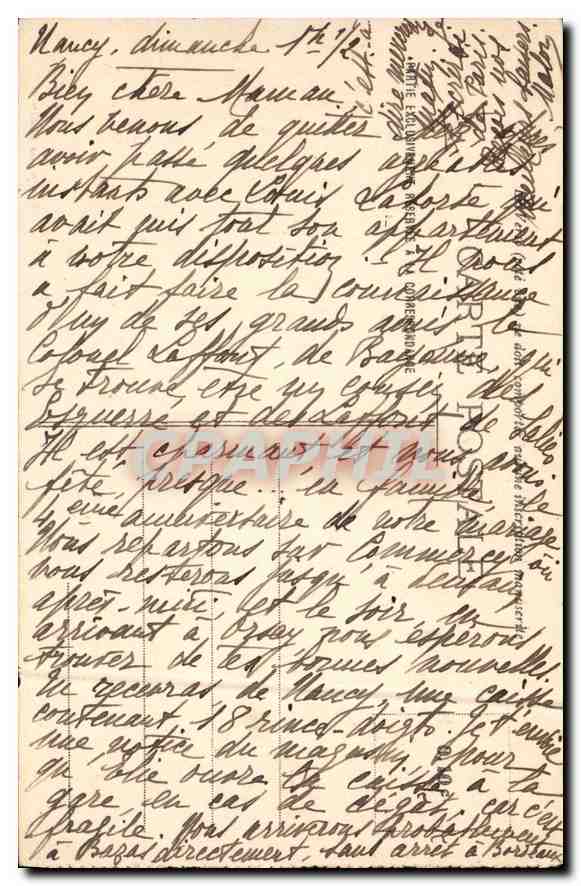 Nancy, dimanche 1h 1/2
Bien chère Maman.
Nous venons de quitter
avoir passé quelques agréables
instants avec Louis Laborte qui
avait mis tout son appartement
à notre disposition. Il nous
a fait faire la connaissance
d'un de ses grands amis le
Colonel Laffont, de Bayonne, qui
se trouve être un cousin des
Esquerre et des Laffont de Salies
Il est charmant et nous avons
fêté, presque... en famille le
4ème anniversaire de notre mariage
Nous repartons sur Commercy où
nous resterons jusqu'à demain
après-midi, et le soir en
arrivant à Orsay nous espérons
trouver de tes bonnes nouvelles.
Tu recevras de Nancy une caisse
contenant 18 rince-doigts. Je t'envoie
une notice du magasin pour
qu'Elie ouvre la caisse à la
gare, en cas de dégât, car c'est
fragile. Nous arriverons probablement
à Bazas directement, sans arrêt à Bordeaux
c'est-à
Paris
CARTE POSTALE
PARTIE EXCLUSIVEMENT RÉSERVÉE A LA CORRESPONDANCE
CPAPHIL